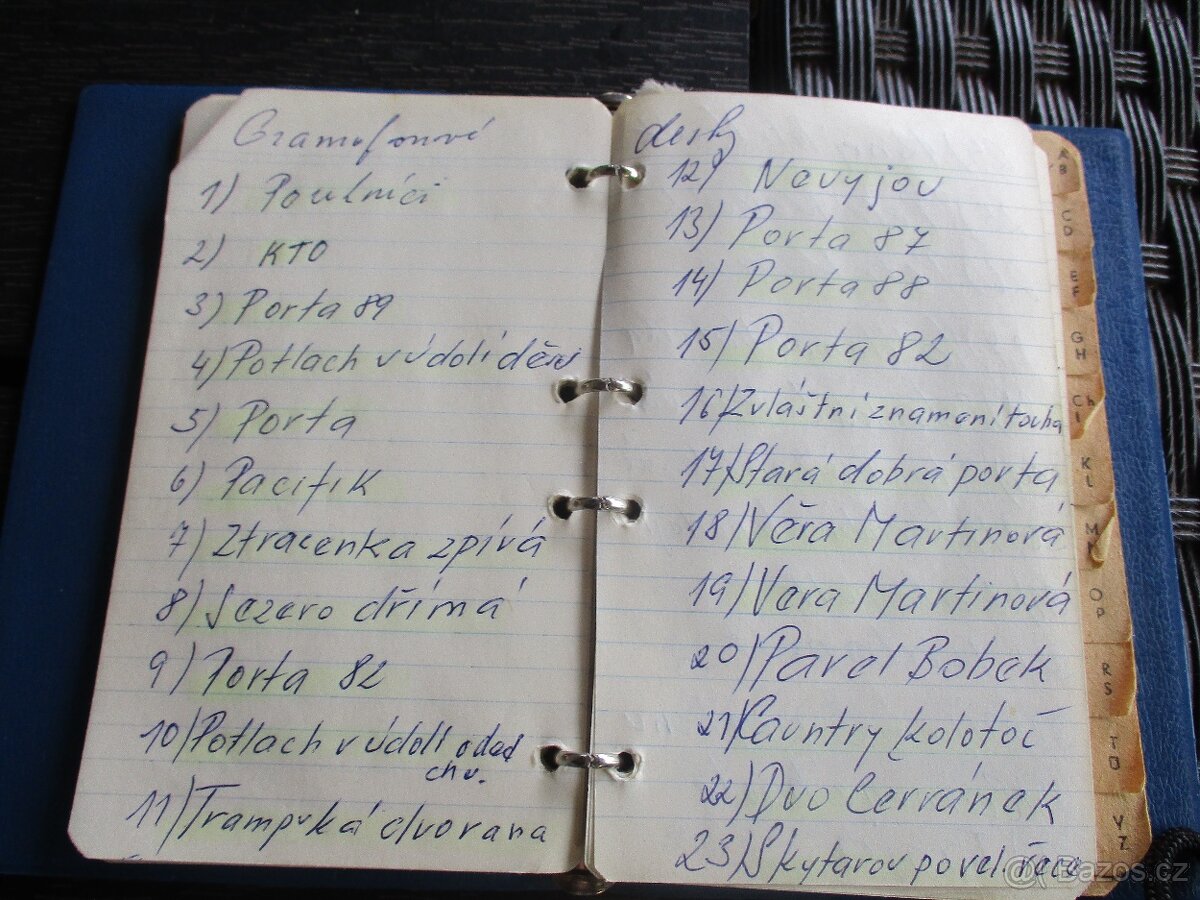 Gramofonové
1) Poutníci
2) KTO
3) Porta 89
4) Potlach v údolí děsu
5) Porta
6) Pacifik
7) Ztracenka zpívá
8) Jezero dřímá
9) Porta 82
10) Potlach v údolí oded
chu.
11) Trampská dvorana
desky
12) Nevyjou
13) Porta 87
14) Porta 88
15) Porta 82
16) Zvláštní znamení touha
17) Stará dobrá porta
18) Věra Martinová
19) Vera Martinová
20) Pavel Bobek
21) Cauntry kolotoč
22) Duo Červánek
23) S kytarou po vel. řece
AB
CD
EF
GH
Ch I
KL
M
OP
RS
TU
VZ
Bazos.cz